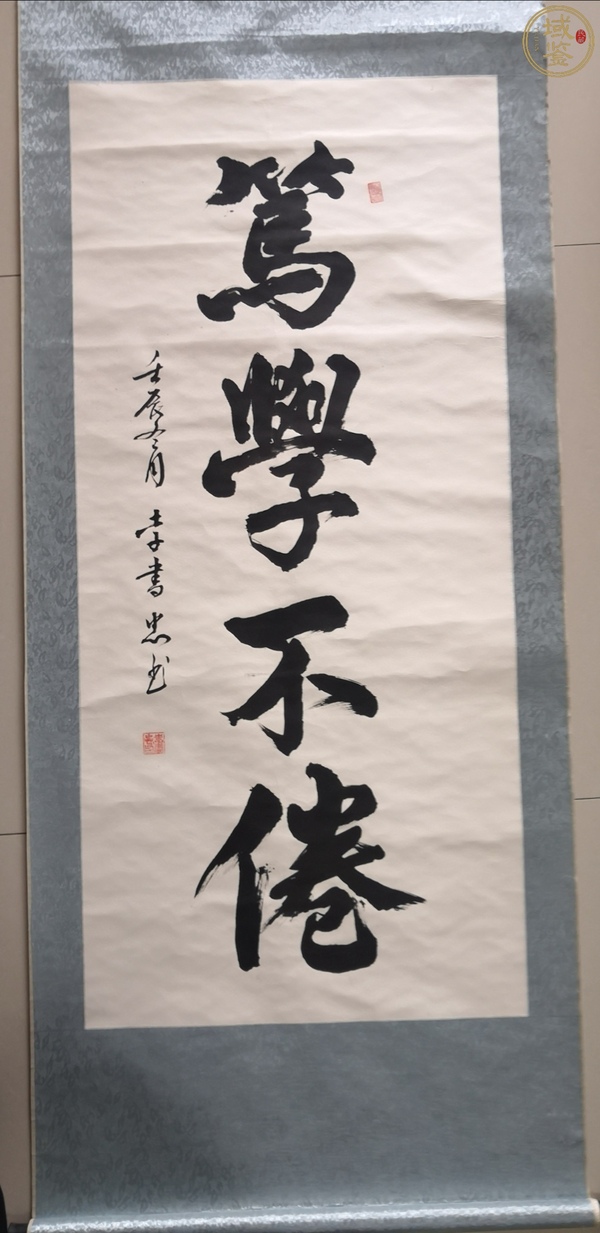 篤學不倦
壬辰冬月 李書忠书
域鉴